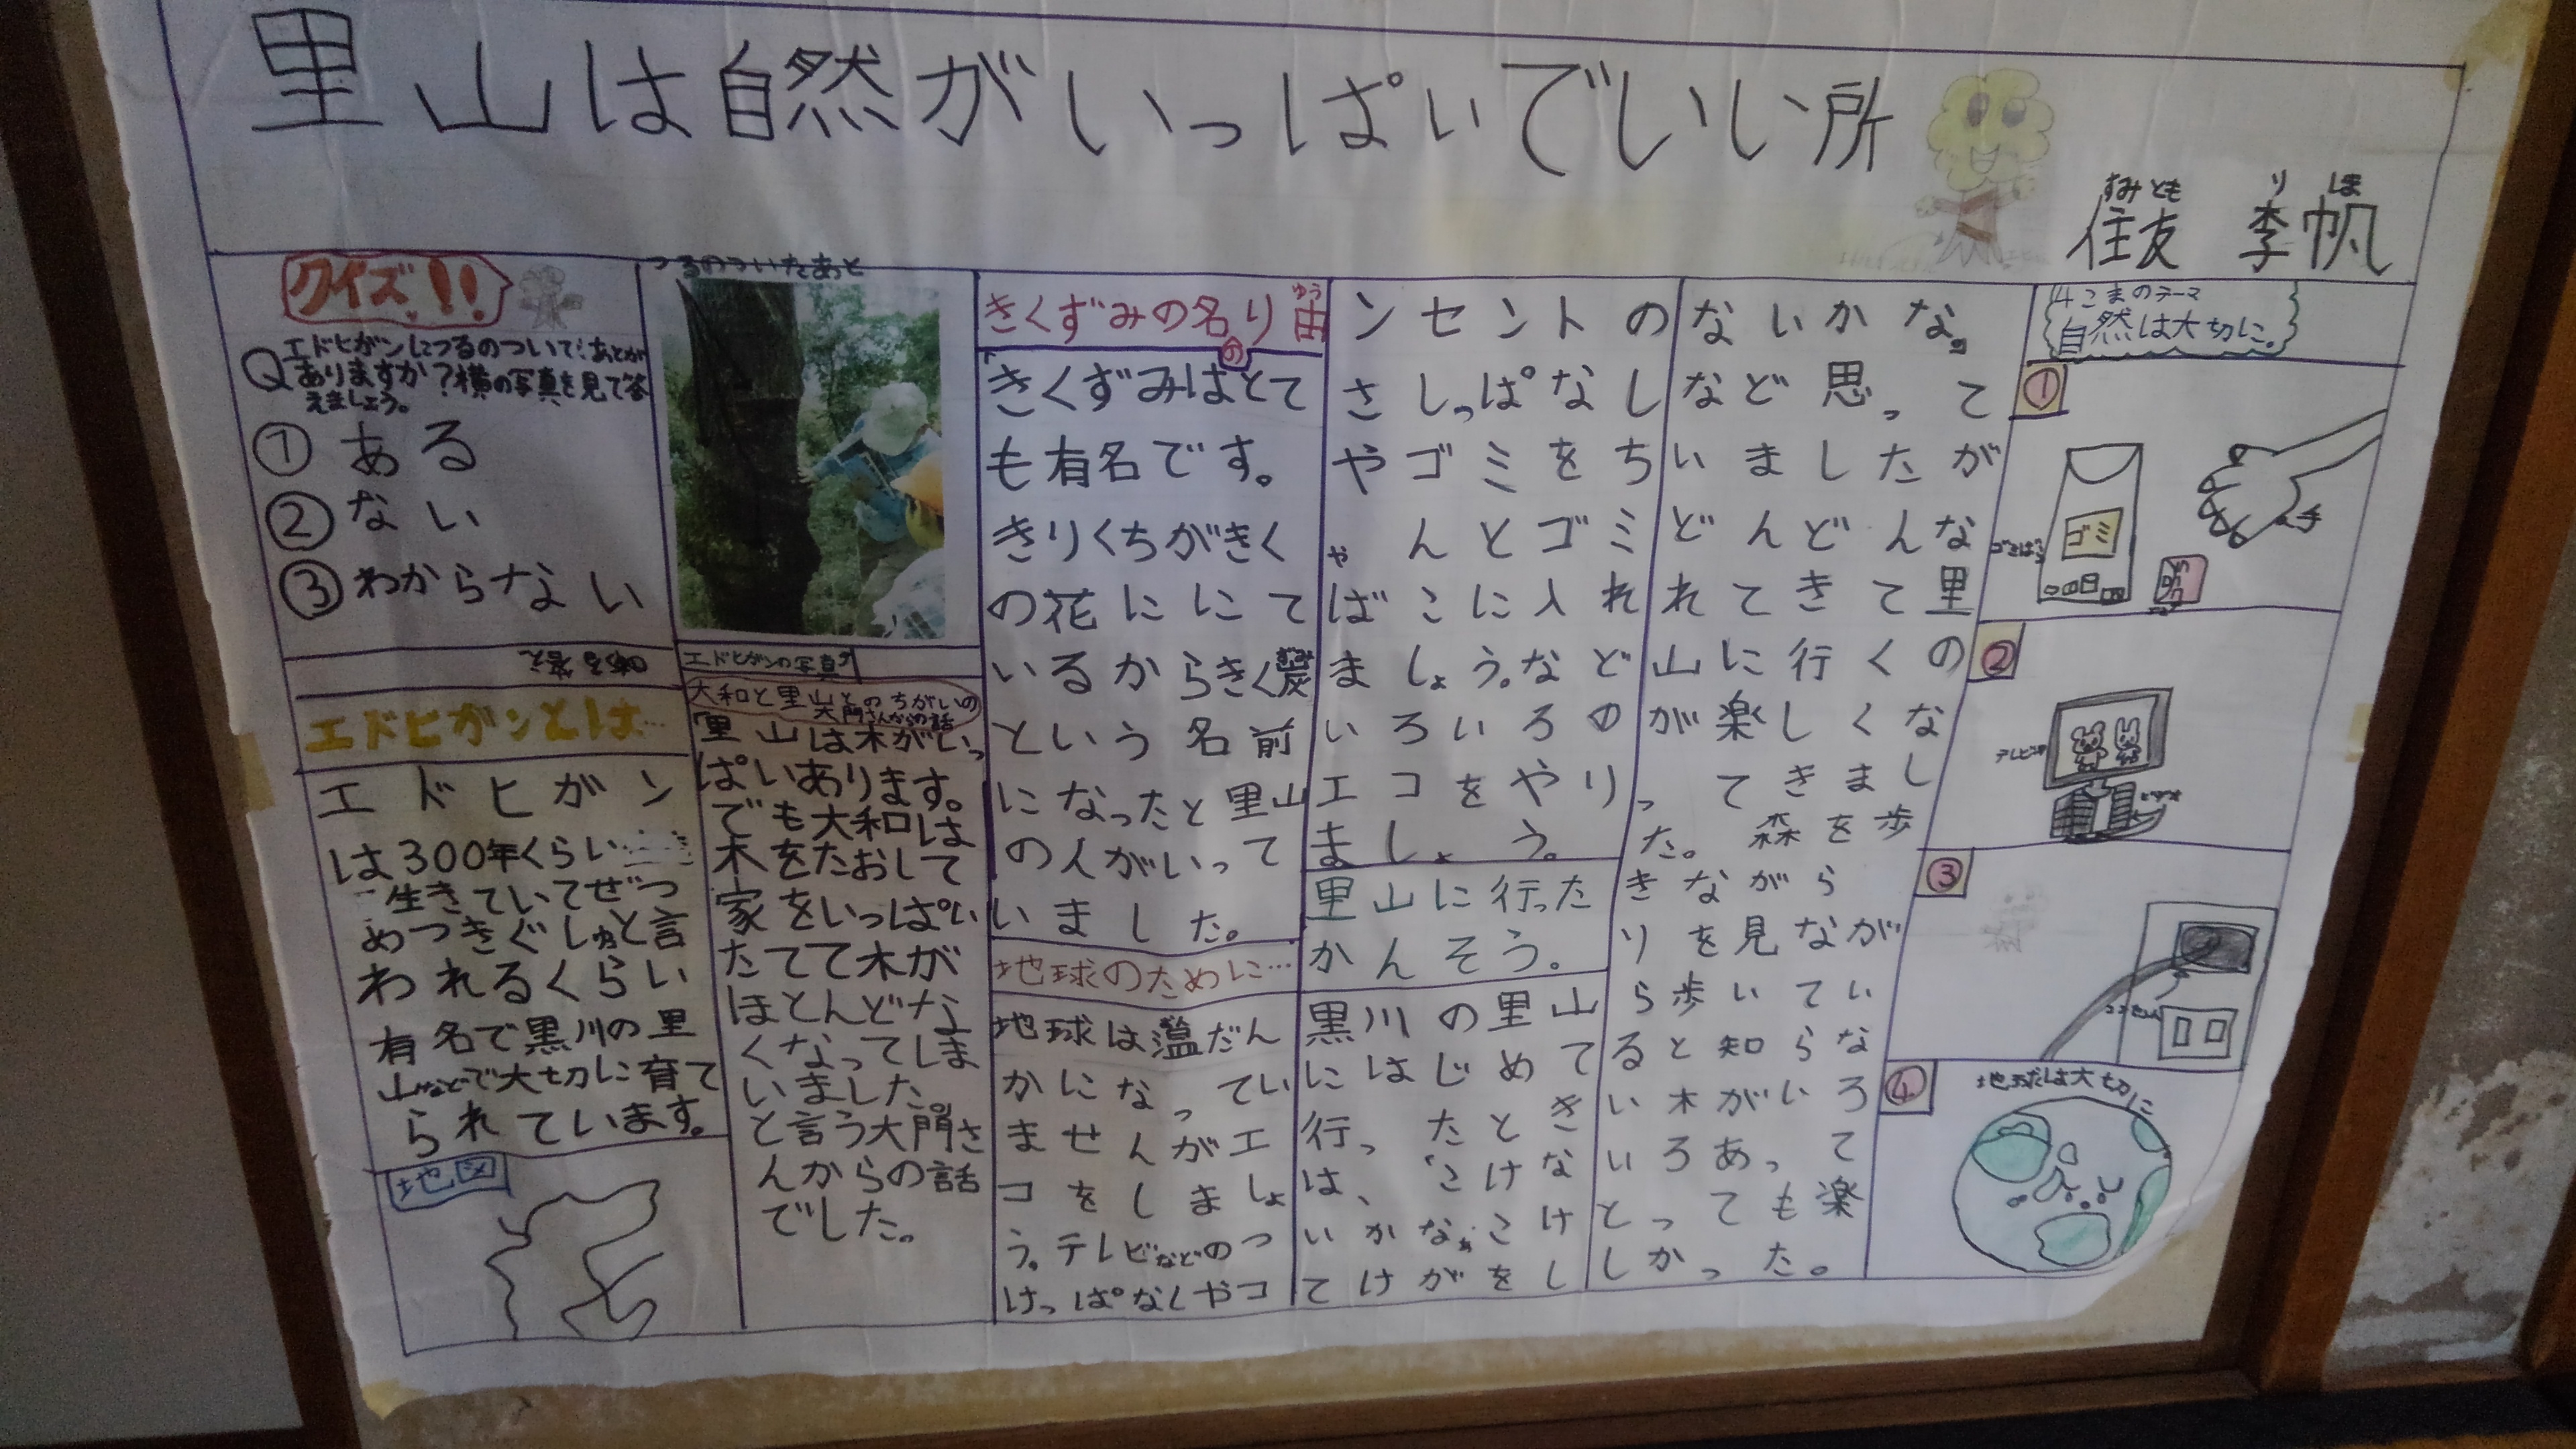 里山は自然がいっぱいでいい所
すみとも りほ
住友 李帆
クイズ!!
Q エドヒガンにつるのついてあとが
ありますか?横の写真を見て答
えましょう。
① ある
② ない
③ わからない
エドヒガンとは…
エドヒガン
は300年くらい
生きていてぜつ
めつきぐしゅと言
われるくらい
有名で黒川の里
山などで大切に育て
られています。
地図
つるのついたあと
エドヒガンの写真
大和と里山とのちがいの
大門さんからの話
里山は木がいっ
ぱいあります。
でも大和は
木をたおして
家をいっぱい
たてて木が
ほとんどな
くなってしま
いました。
と言う大門さ
んからの話
でした。
きくずみの名のり由
ゆう
「きくずみはとて
も有名です。
きりくちがきく
の花ににて
いるからきく炭
ずみ
という名前
になったと里山
の人がいって
いました。
地球のために…
地球は温だん
かになってい
ませんがエ
コをしましょ
う。テレビなどのつ
けっぱなしやコ
ンセントの
さしっぱなし
やゴミをち
ゃんとゴミ
ばこに入れ
ましょう。など
いろいろの
エコをやり
ましょう。
里山に行った
かんそう。
黒川の里山
にはじめて
行ったとき
は、「こけな
いかな。」こけ
てけがをし
ないかな。」
など思って
いましたが
どんどんな
れてきて里
山に行くの
が楽しくな
ってきまし
た。森を歩
きながら
りを見なが
ら歩いてい
ると知らな
い木がいろ
いろあって
とっても楽
しかった。
4こまのテーマ
自然は大切に。
①
ゴミばこ
ゴミ
手
②
テレビ
ビデオ
③
コンセント
④
地球は大切に